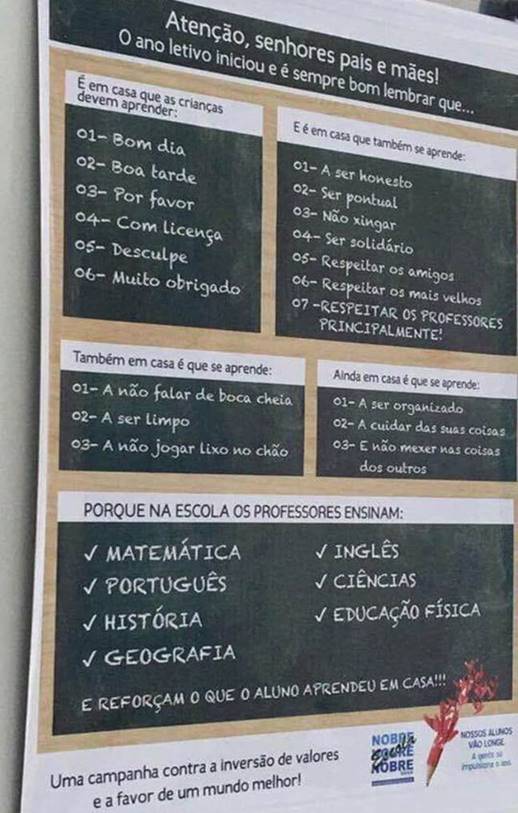 Atenção, senhores pais e mães!
O ano letivo iniciou e é sempre bom lembrar que...
É em casa que as crianças
devem aprender:
01- Bom dia
02- Boa tarde
03- Por favor
04- Com licença
05- Desculpe
06- Muito obrigado
E é em casa que também se aprende:
01- A ser honesto
02- Ser pontual
03- Não xingar
04- Ser solidário
05- Respeitar os amigos
06- Respeitar os mais velhos
07 -RESPEITAR OS PROFESSORES
PRINCIPALMENTE!
Também em casa é que se aprende:
01- A não falar de boca cheia
02- A ser limpo
03- A não jogar lixo no chão
Ainda em casa é que se aprende:
01- A ser organizado
02- A cuidar das suas coisas
03- E não mexer nas coisas
dos outros
PORQUE NA ESCOLA OS PROFESSORES ENSINAM:
√ MATEMÁTICA
√ PORTUGUÊS
√ HISTÓRIA
√ GEOGRAFIA
√ INGLÊS
√ CIÊNCIAS
√ EDUCAÇÃO FÍSICA
E REFORÇAM O QUE O ALUNO APRENDEU EM CASA!!!
Uma campanha contra a inversão de valores
e a favor de um mundo melhor!
NOBRE
NOBRE
NOSSOS ALUNOS
VÃO LONGE.
A gente só
impulsiona o voo.